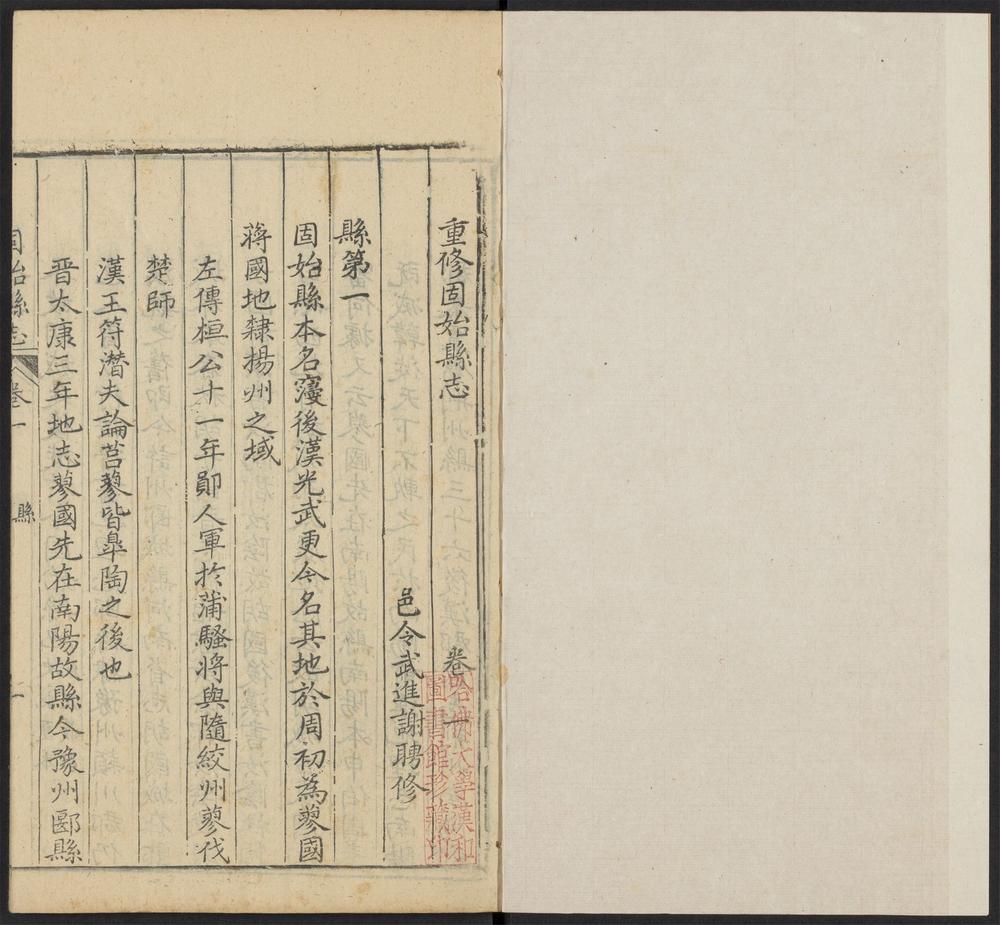 重修固始縣志 卷一
邑令武進謝聘修
縣第一
固始縣本名寑後漢光武更今名其地於周初為蓼國
蔣國地隸揚州之域
左傳桓公十一年鄖人軍於蒲騷將與隨絞州蓼伐
楚師
漢王符潛夫論莒蓼皆臯陶之後也
晋太康三年地志蓼國先在南陽故縣今豫州郾縣
固始縣志 卷一 縣 一
哈佛大學漢和
圖書館珍藏印